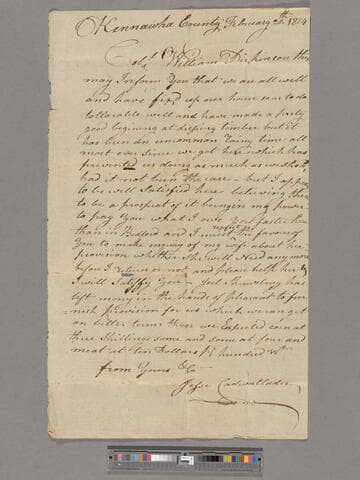 Kennawha County February 2th. 1814
Colo. William Dickinson this
may Inform You that we are all well
and have fixd up our house so as to do
tollarable well and have made a prity
good begining at diping timber but it
has ben an uncommon raing time all
most ever since we got here which has
prevented us doing as much as we shoth
had it not been the case - but I appea
to be well Satisfied here believing there
to be a prospect of it being in my power
to pay You what I owe You faster here
than in Bedford and I must request the favour of
You to make enquiry of my wife about her
provision whether She will Need any more
before I return or not and please help her &
I will Satisfy You - Joel Snowling has
left money in the hands of pleasant to fur
nish provision for us which we can get
on better terms than we Expected corn at
three Shillings some and some at four and
meat at ten Dollars pr hundred wt.
from Yours &C
Jesse Cadwallader